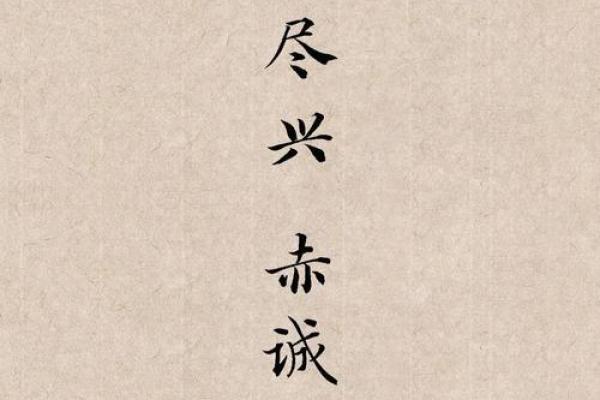 尽兴
赤诚